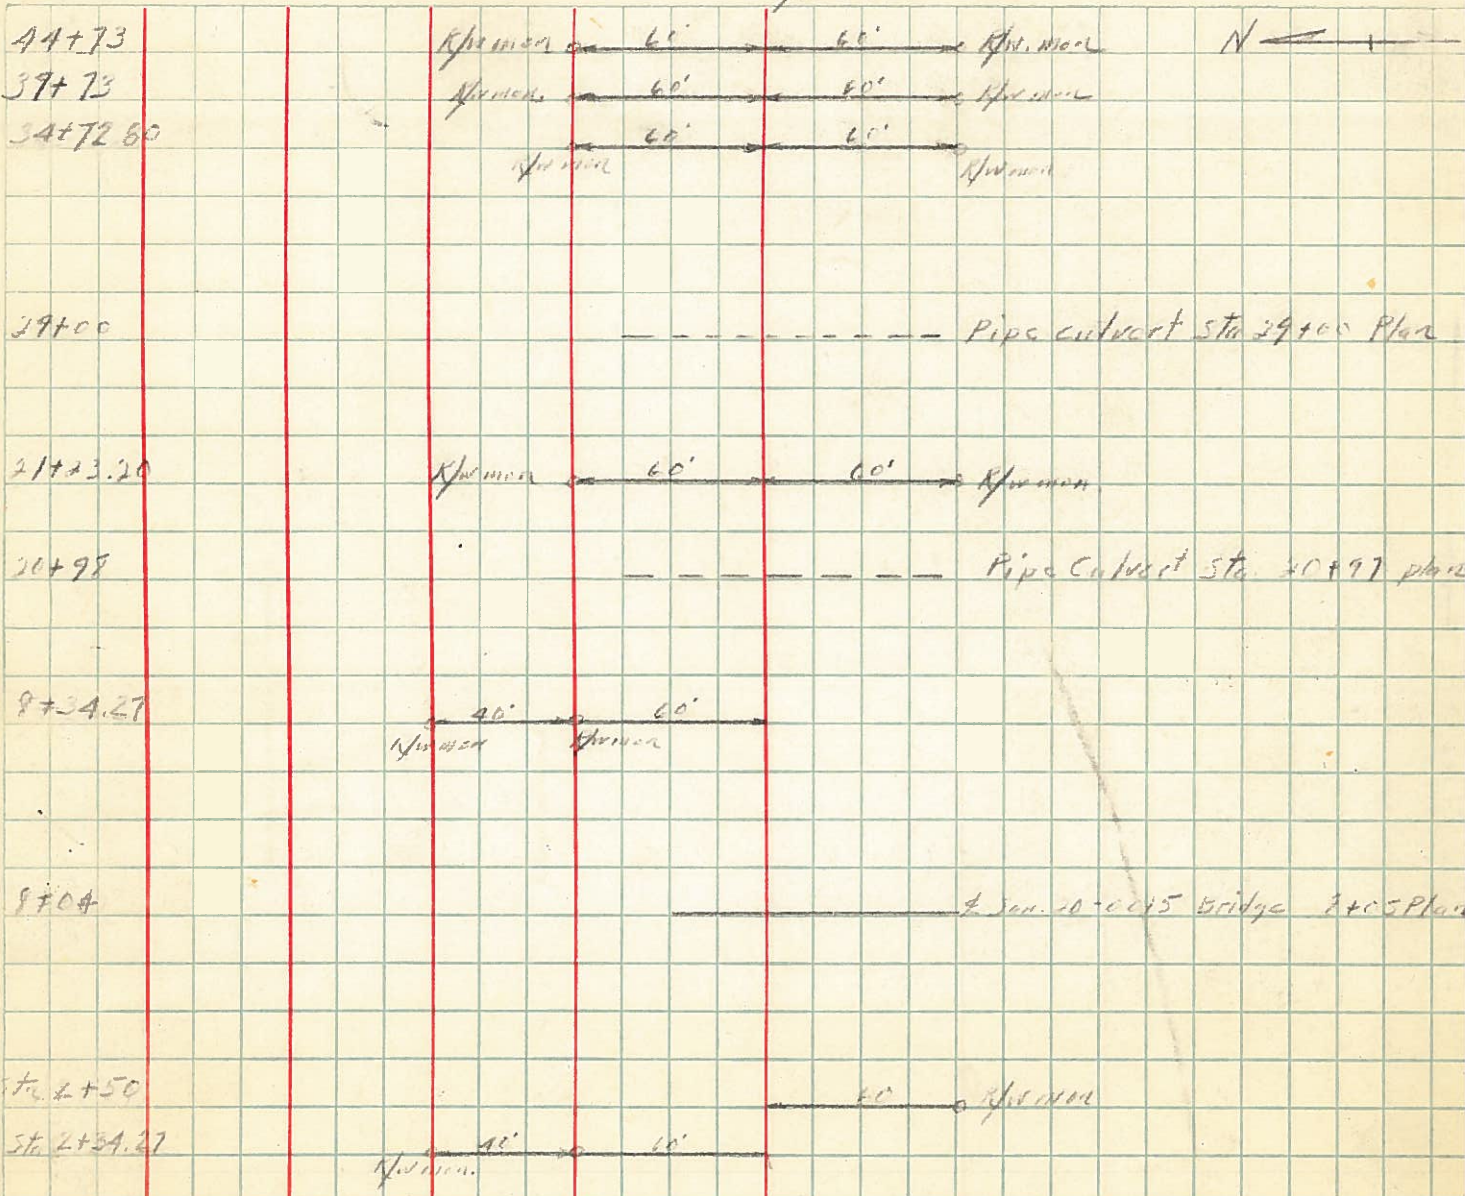 44+73 R/W mon 60' 60' R/W. mon N
39+73 R/W mon. 60' 60' R/W mon
34+72.80 60' 60'
R/W mon R/W mon
29+00 Pipe culvert Sta 29+00 Plan
21+23.20 R/W mon 60' 60' R/W mon.
20+98 Pipe Culvert Sta. 20+97 plan
8+34.27 40' 60'
R/W mon R/W mon
8+04 ℄ Bridge 8+05 Plan
Sta 2+50 60' R/W mon
Sta 2+34.27 40' 60'
R/W mon.